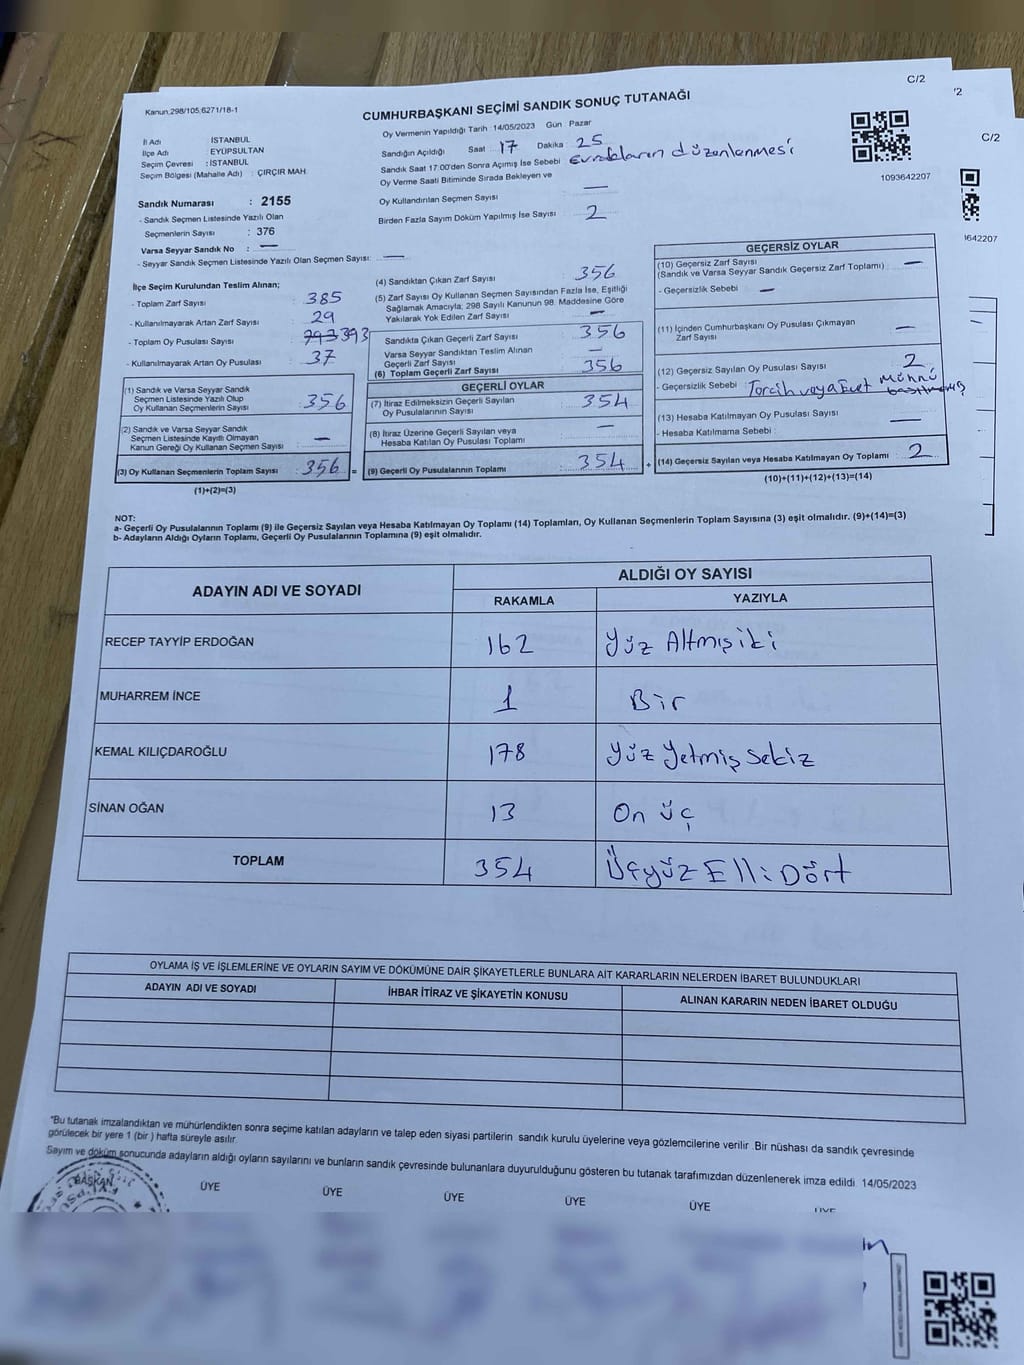 C/2
'2
C/2
Kanun;298/105;6271/18-1
CUMHURBAŞKANI SEÇİMİ SANDIK SONUÇ TUTANAĞI
İl Adı İSTANBUL
İlçe Adı : EYÜPSULTAN
Seçim Çevresi : İSTANBUL
Seçim Bölgesi (Mahalle Adı) : ÇIRÇIR MAH.
Oy Vermenin Yapıldığı Tarih 14/05/2023 Gün Pazar
Sandığın Açıldığı Saat 17 Dakika 25
Sandık Saat 17:00'den Sonra Açımış İse Sebebi Evrakların düzenlenmesi
Oy Verme Saati Bitiminde Sırada Bekleyen ve
Oy Kullandırılan Seçmen Sayısı —
Birden Fazla Sayım Döküm Yapılmış İse Sayısı 2
1093642207
1642207
Sandık Numarası : 2155
- Sandık Seçmen Listesinde Yazılı Olan
Seçmenlerin Sayısı : 376
Varsa Seyyar Sandık No : —
- Seyyar Sandık Seçmen Listesinde Yazılı Olan Seçmen Sayısı: —
İlçe Seçim Kurulundan Teslim Alınan;
- Toplam Zarf Sayısı : 385
- Kullanılmayarak Artan Zarf Sayısı : 29
- Toplam Oy Pusulası Sayısı : 793 393
- Kullanılmayarak Artan Oy Pusulası : 37
(1) Sandık ve Varsa Seyyar Sandık
Seçmen Listesinde Yazılı Olup
Oy Kullanan Seçmenlerin Sayısı : 356
(2) Sandık ve Varsa Seyyar Sandık
Seçmen Listesinde Kayıtlı Olmayan
Kanun Gereği Oy Kullanan Seçmen Sayısı : —
(3) Oy Kullanan Seçmenlerin Toplam Sayısı : 356 =
(1)+(2)=(3)
(4) Sandıktan Çıkan Zarf Sayısı : 356
(5) Zarf Sayısı Oy Kullanan Seçmen Sayısından Fazla İse, Eşitliği
Sağlamak Amacıyla; 298 Sayılı Kanunun 98. Maddesine Göre
Yakılarak Yok Edilen Zarf Sayısı : —
Sandıkta Çıkan Geçerli Zarf Sayısı : 356
Varsa Seyyar Sandıktan Teslim Alınan
Geçerli Zarf Sayısı : —
(6) Toplam Geçerli Zarf Sayısı : 356
GEÇERLİ OYLAR
(7) İtiraz Edilmeksizin Geçerli Sayılan
Oy Pusulasının Sayısı : 354
(8) İtiraz Üzerine Geçerli Sayılan veya
Hesaba Katılan Oy Pusulası Toplamı : —
(9) Geçerli Oy Pusulalarının Toplamı : 354 +
GEÇERSİZ OYLAR
(10) Geçersiz Zarf Sayısı
(Sandık ve Varsa Seyyar Sandık Geçersiz Zarf Toplamı) : —
- Geçersizlik Sebebi : —
(11) İçinden Cumhurbaşkanı Oy Pusulası Çıkmayan
Zarf Sayısı : —
(12) Geçersiz Sayılan Oy Pusulası Sayısı : 2
- Geçersizlik Sebebi : Tercih veya Evet
(13) Hesaba Katılmayan Oy Pusulası Sayısı : —
- Hesaba Katılmama Sebebi :
(14) Geçersiz Sayılan veya Hesaba Katılmayan Oy Toplamı : 2
(10)+(11)+(12)+(13)=(14)
NOT:
a- Geçerli Oy Pusulalarının Toplamı (9) ile Geçersiz Sayılan veya Hesaba Katılmayan Oy Toplamı (14) Toplamları, Oy Kullanan Seçmenlerin Toplam Sayısına (3) eşit olmalıdır. (9)+(14)=(3)
b- Adayların Aldığı Oyların Toplamı, Geçerli Oy Pusulalarının Toplamına (9) eşit olmalıdır.
ADAYIN ADI VE SOYADI
ALDIĞI OY SAYISI
RAKAMLA YAZIYLA
RECEP TAYYİP ERDOĞAN 162 Yüz Altmış iki
MUHARREM İNCE 1 Bir
KEMAL KILIÇDAROĞLU 178 Yüz Yetmiş Sekiz
SİNAN OĞAN 13 On üç
TOPLAM 354 Üçyüz Elli Dört
OYLAMA İŞ VE İŞLEMLERİNE VE OYLARIN SAYIM VE DÖKÜMÜNE DAİR ŞİKAYETLERLE BUNLARA AİT KARARLARIN NELERDEN İBARET BULUNDUKLARI
ADAYIN ADI VE SOYADI İHBAR İTİRAZ VE ŞİKAYETİN KONUSU ALINAN KARARIN NEDEN İBARET OLDUĞU
*Bu tutanak imzalandıktan ve mühürlendikten sonra seçime katılan adayların ve talep eden siyasi partilerin sandık kurulu üyelerine veya gözlemcilerine verilir .Bir nüshası da sandık çevresinde
görülecek bir yere 1 (bir ) hafta süreyle asılır.
Sayım ve döküm sonucunda adayların aldığı oyların sayılarını ve bunların sandık çevresinde bulunanlara duyurulduğunu gösteren bu tutanak tarafımızdan düzenlenerek imza edildi. 14/05/2023
BAŞKAN ÜYE ÜYE ÜYE ÜYE ÜYE ÜYE